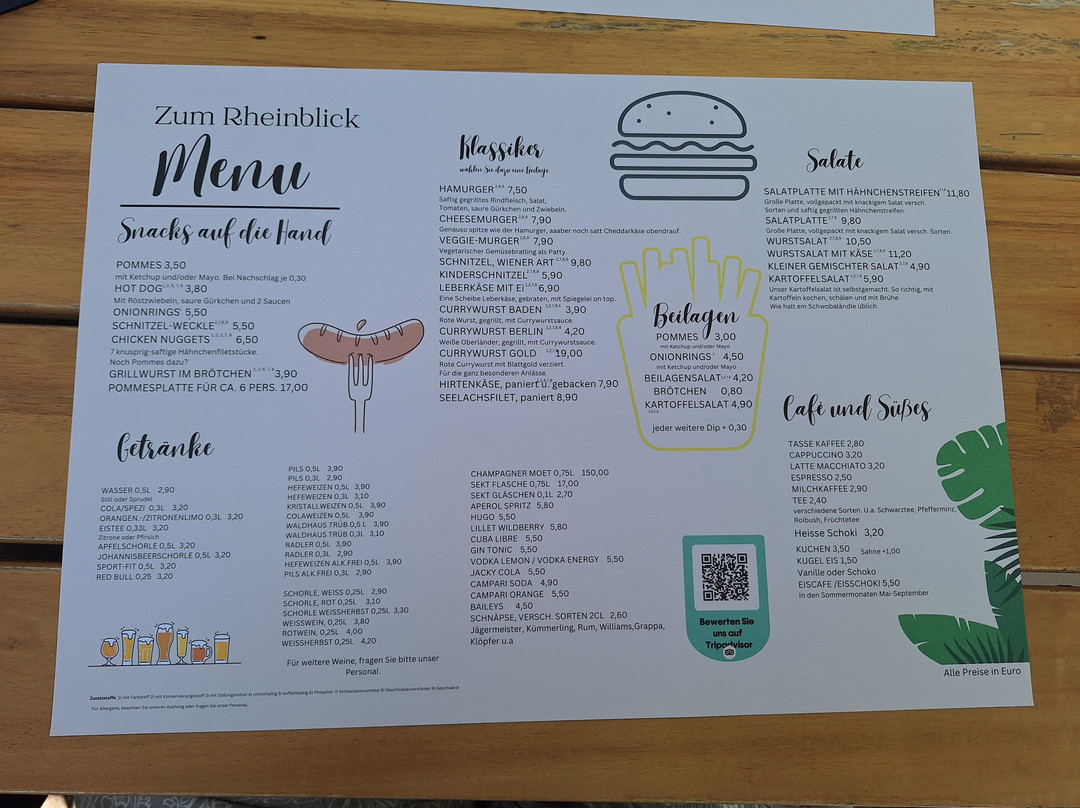 Zum Rheinblick
Menu
Snacks auf die Hand
POMMES 3,50
mit Ketchup und/oder Mayo. Bei Nachschlag je 0,30
HOT DOG 3,80
Mit Röstzwiebeln, saure Gürkchen und 2 Saucen
ONIONRINGS 5,50
SCHNITZEL-WECKLE 5,50
CHICKEN NUGGETS 6,50
7 knusprig-saftige Hähnchenfiletstücke.
Noch Pommes dazu?
GRILLWURST IM BRÖTCHEN 3,90
POMMESPLATTE FÜR CA. 6 PERS. 17,00
Klassiker
wählen Sie dazu eine Beilage
HAMURGER 7,50
Saftig gegrilltes Rindfleisch, Salat,
Tomaten, saure Gürkchen und Zwiebeln.
CHEESEMURGER 7,90
Genauso spitze wie der Hamurger, aaaber noch satt Cheddarkäse obendrauf.
VEGGIE-MURGER 7,90
Vegetarischer Gemüsebratling als Patty.
SCHNITZEL, WIENER ART 9,80
KINDERSCHNITZEL 5,90
LEBERKÄSE MIT Ei 6,90
Eine Scheibe Leberkäse, gebraten, mit Spiegelei on top.
CURRYWURST BADEN 3,90
Rote Wurst, gegrillt, mit Currywurstsauce.
CURRYWURST BERLIN 4,20
Weiße Oberländer, gegrillt, mit Currywurstsauce.
CURRYWURST GOLD 19,00
Rote Currywurst mit Blattgold verziert.
Für die ganz besonderen Anlässe.
HIRTENKÄSE, paniert u. gebacken 7,90
SEELACHSFILET, paniert 8,90
Beilagen
POMMES 3,00
mit Ketchup und/oder Mayo
ONIONRINGS 4,50
mit Ketchup und/oder Mayo
BEILAGENSALAT 4,20
BRÖTCHEN 0,80
KARTOFFELSALAT 4,90
jeder weitere Dip + 0,30
Salate
SALATPLATTE MIT HÄHNCHENSTREIFEN 11,80
Große Platte, vollgepackt mit knackigem Salat versch.
Sorten und saftig gegrillten Hähnchenstreifen.
SALATPLATTE 9,80
Große Platte, vollgepackt mit knackigem Salat versch. Sorten.
WURSTSALAT 10,50
WURSTSALAT MIT KÄSE 11,20
KLEINER GEMISCHTER SALAT 4,90
KARTOFFELSALAT 5,90
Unser Kartoffelsalat ist selbstgemacht. So richtig, mit
Kartoffeln kochen, schälen und mit Brühe.
Wie halt em Schwobaländle üblich.
Getränke
WASSER 0,5L 2,90
Still oder Sprudel
COLA/SPEZI 0,3L 3,20
ORANGEN.-/ZITRONENLIMO 0,3L 3,20
EISTEE 0,33L 3,20
Zitrone oder Pfirsich
APFELSCHORLE 0,5L 3,20
JOHANNISBEERSCHORLE 0,5L 3,20
SPORT-FIT 0,5L 3,20
RED BULL 0,25 3,20
PILS 0,5L 3,90
PILS 0,3L 2,90
HEFEWEIZEN 0,5L 3,90
HEFEWEIZEN 0,3L 3,10
KRISTALLWEIZEN 0,5L 3,90
COLAWEIZEN 0,5L 3,90
WALDHAUS TRÜB 0,5 L 3,90
WALDHAUS TRÜB 0,3L 3,10
RADLER 0,5L 3,90
RADLER 0,3L 2,90
HEFEWEIZEN ALK.FREI 0,5L 3,90
PILS ALK.FREI 0,3L 2,90
SCHORLE, WEISS 0,25L 2,90
SCHORLE, ROT 0,25L 3,10
SCHORLE WEISSHERBST 0,25L 3,30
WEISSWEIN, 0,25L 3,80
ROTWEIN, 0,25L 4,00
WEISSHERBST 0,25L 4,20
Für weitere Weine, fragen Sie bitte unser
Personal.
CHAMPAGNER MOET 0,75L 150,00
SEKT FLASCHE 0,75L 17,00
SEKT GLÄSCHEN 0,1L 2,70
APEROL SPRITZ 5,80
HUGO 5,50
LILLET WILDBERRY 5,80
CUBA LIBRE 5,50
GIN TONIC 5,50
VODKA LEMON / VODKA ENERGY 5,50
JACKY COLA 5,50
CAMPARI SODA 4,90
CAMPARI ORANGE 5,50
BAILEYS 4,50
SCHNÄPSE, VERSCH. SORTEN 2CL 2,60
Jägermeister, Kümmerling, Rum, Williams,Grappa,
Klöpfer u.a
Bewerten Sie
uns auf
Tripadvisor
Café und Süßes
TASSE KAFFEE 2,80
CAPPUCCINO 3,20
LATTE MACCHIATO 3,20
ESPRESSO 2,50
MILCHKAFFEE 2,90
TEE 2,40
verschiedene Sorten. U.a. Schwarztee, Pfefferminz,
Roibush, Früchtetee
Heisse Schoki 3,20
KUCHEN 3,50 Sahne +1,00
KUGEL EIS 1,50
Vanille oder Schoko
EISCAFE /EISSCHOKI 5,50
In den Sommermonaten Mai-September
Alle Preise in Euro
Zusatzstoffe: 1) mit Farbstoff 2) mit Konservierungsstoff 3) mit Süßungsmittel 4) chininhaltig 5) koffeinhaltig 6) Phosphat 7) Antioxidationsmittel 8) Geschmacksverstärker 9) Geschwärzt
Für Allergene, beachten Sie unseren Aushang oder fragen Sie unser Personal.